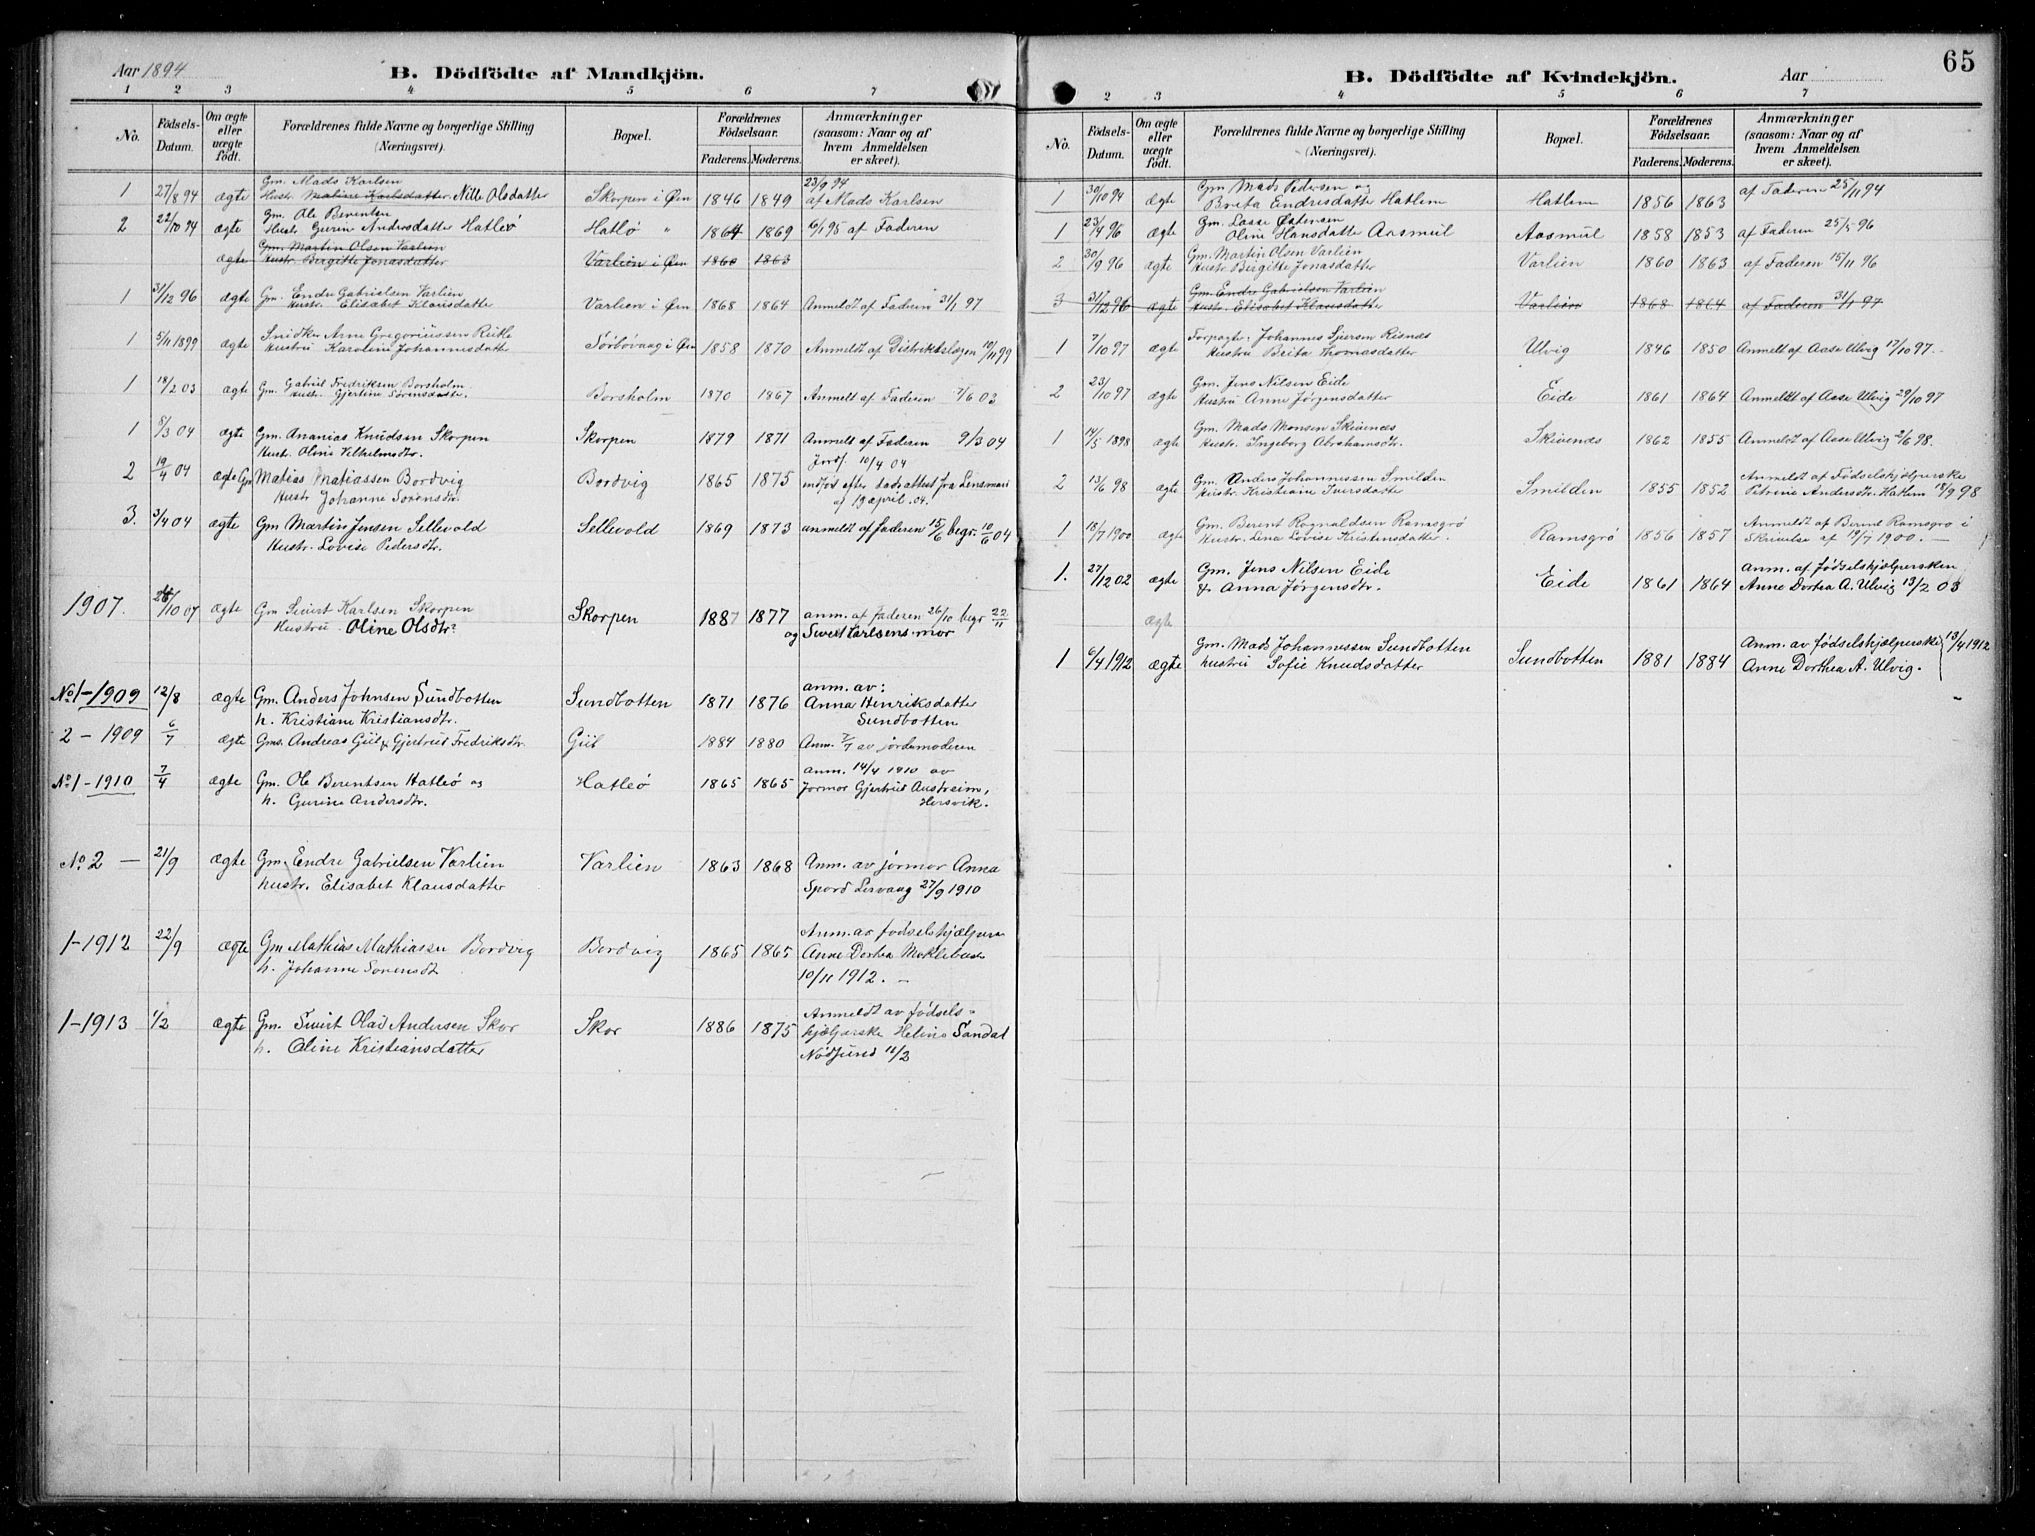 Aar 1894 B. Dödfödte af Mandkjön.
1 2 3 4 5 6 7
No. Födsels-Datum. Om ægte eller uægte födt. Forældrenes fulde Navne og borgerlige Stilling (Næringsvei). Bopæl. Forældrenes Födselsaar. Faderens. Moderens. Anmærkninger (saasom: Naar og af hvem Anmeldelsen er skeet).
1 27/8 94 ægte Gm. Mads Karlsen Skorpen i Øen 1846 1849 23/9 94
Hustr. Maline Karlsdatter Nille Olsdatter af Mads Karlsen
2 22/10 94 ægte Gm. Ole Berentsen Hatlø " 1864 1869 6/1 95 af Faderen
Hustr. Gurine Andersdatter Hatleö
ægte Gm. Martin Olsen Varlien Varlien i Øen 1860 1863
Hustr. Birgitte Jonasdatter
1 31/12 96 ægte Gm. Endre Gabrielsen Varlien Varlien i Øen 1868 1864 Anmeldt af Faderen 31/1 97
Hustr. Elisabet Klausdatter
1 5/11 1899 ægte Snidker Arne Gregoriussen Rutle Sörbövaag i Øen 1858 1870 Anmeldt af Distriktslægen 10/11 99
Hustru Karoline Johannesdatter
1 18/2 03 ægte Gm. Gabriel Fredriksen Borsholm Borsholm 1870 1867 Anmelt af Faderen 7/6 03
Hustr. Gjertine Sörensdatte.
1 8/3 04 ægte Gm. Ananias Knudsen Skorpen Skorpen 1879 1871 Anmelt af Faderen 9/3 04
Hustr. Oline Vilhelmsdtr. Jordf. 10/4 04
2 19/4 04 ægte Gm Matias Matiassen Bordvig Bordvig 1865 1875 indført efter dødsattest fra Lensmand
Hustr Johanne Sörensdtr. af 19 april. 04.
3. 3/4 04 ægte Gm Martin Jensen Sellevold Sellevold 1869 1873 anmeldt af faderen 15/6 begr. 10/6 04
Hustr. Lovise Pedersdtr.
1907. 26/10 07 ægte Gm Sivert Karlsen Skorpen Skorpen 1887 1877 anm. af faderen 26/10 begr 22/11
Hustru Oline Olsdtr. og Sivert Karlsens mor
No 1-1909 12/8 ægte Gm. Anders Johnsen Sundbotten Sundbotten 1871 1876 anm. av:
h. Kristiane Kristiansdtr. Anna Henriksdatter
Sundbotten
2 - 1909 6/7 ægte Gms. Andreas Giil & Gjertrud Fredriksdtr. Giil 1884 1880 Anm. 7/7 av jordemoderen
No 1-1910 7/4 ægte Gm. Ole Berentsen Hatleö og Hatleö 1865 1865 anm. 14/4 1910 av
h. Gurine Andersdtr. Jormor Gjertrud Austreim,
Hersvik.
No 2 — 21/9 ægte Gm. Endre Gabrielsen Varlien Varlien 1863 1868 Anm. av jormor Anna
hustr. Elisabet Klausdatter Spord Lervaag 27/9 1910
1-1912 22/9 ægte Gm Mathias Mathiassen Bordvig Bordvig 1865 1865 Anm. av fødselshjælpers
h. Johanne Sörensdt Anne Dorthea Moklebust
10/11 1912. -
1-1913 1/2 ægte Gm. Sivert Olai Andersen Skor Skor 1886 1875 Anmeldt av fødsels-
h. Oline Kristiansdatter hjælperske Heline Sandal
Nödsund 11/2
65
B. Dödfödte af Kvindekjön. Aar
2 3 4 5 6 7
No. Födsels-Datum. Om ægte eller uægte födt. Forældrenes fulde Navne og borgerlige Stilling (Næringsvei). Bopæl. Forældrenes Födselsaar. Faderens. Moderens. Anmærkninger (saasom: Naar og af hvem Anmeldelsen er skeet).
1 30/10 94 ægte Gm Mads Pedersen og Hatlem 1856 1863 af Faderen 25/11 94
Brita Endresdatter Hatlem
1 23/4 96 ægte Gm. Lasse Østensen Aasmul 1858 1853 af Faderen 25/5 96
Oline Hansdatter Aasmul
2 30/9 96 ægte Gm. Martin Olsen Varlien Varlien 1860 1863 af Faderen 15/11 96
Hustr. Birgitte Jonasdatter
3 31/12 96 ægte Gm. Endre Gabrielsen Varlien Varlien 1868 1864 af Faderen 31/1 97
Hustr. Elisabet Klausdatter
1 7/10 97 ægte Forpagter Johannes Sjursen Risnæs Ulvig 1846 1850 Anmelt af Aase Ulvig 17/10 97.
Hustru Brita Thomasdatter
2 23/10 97 ægte Gm. Jens Nilsen Eide Eide 1861 1864 Anmeldt af Aase Ulvig 29/10 97
Hustru Anne Jörgensdatter
1 14/5 1898 ægte Gm. Mads Monsen Skivenæs Skivenæs 1862 1855 Anmeldt af Aase Ulvig 2/6 98.
Hustr. Ingeborg Abrahamsdtr.
2 13/6 98 ægte Gm. Anders Johannessen Smilden Smilden 1855 1852 Anmeldt af Födselshjælperske
Hustr. Kristiane Iversdatter Petrine Andersdtr. Hatlem 18/9 98
1 18/7 1900 ægte Gm. Berent Rognaldsen Ramsgrö Ramsgrö 1856 1857 Anmeldt af Berent Ramsgrö i
Hustru. Lina Lovise Kristensdatter. Skrivelse af 19/7 1900. —
1. 27/12 02 ægte Gm. Jens Nilsen Eide Eide 1861 1864 anm. af födselshjælpersken
& Anna Jörgensdtr. Anne Dorthea A. Ulvig 13/2 03
ægte
1 6/4 1912 ægte Gm. Mads Johannessen Sundbotten Sundbotten 1881 1884 Anm. av fødselshjælperske 13/4 1912
hustru Sofie Knudsdatter Anne Dorthea A. Ulvig.